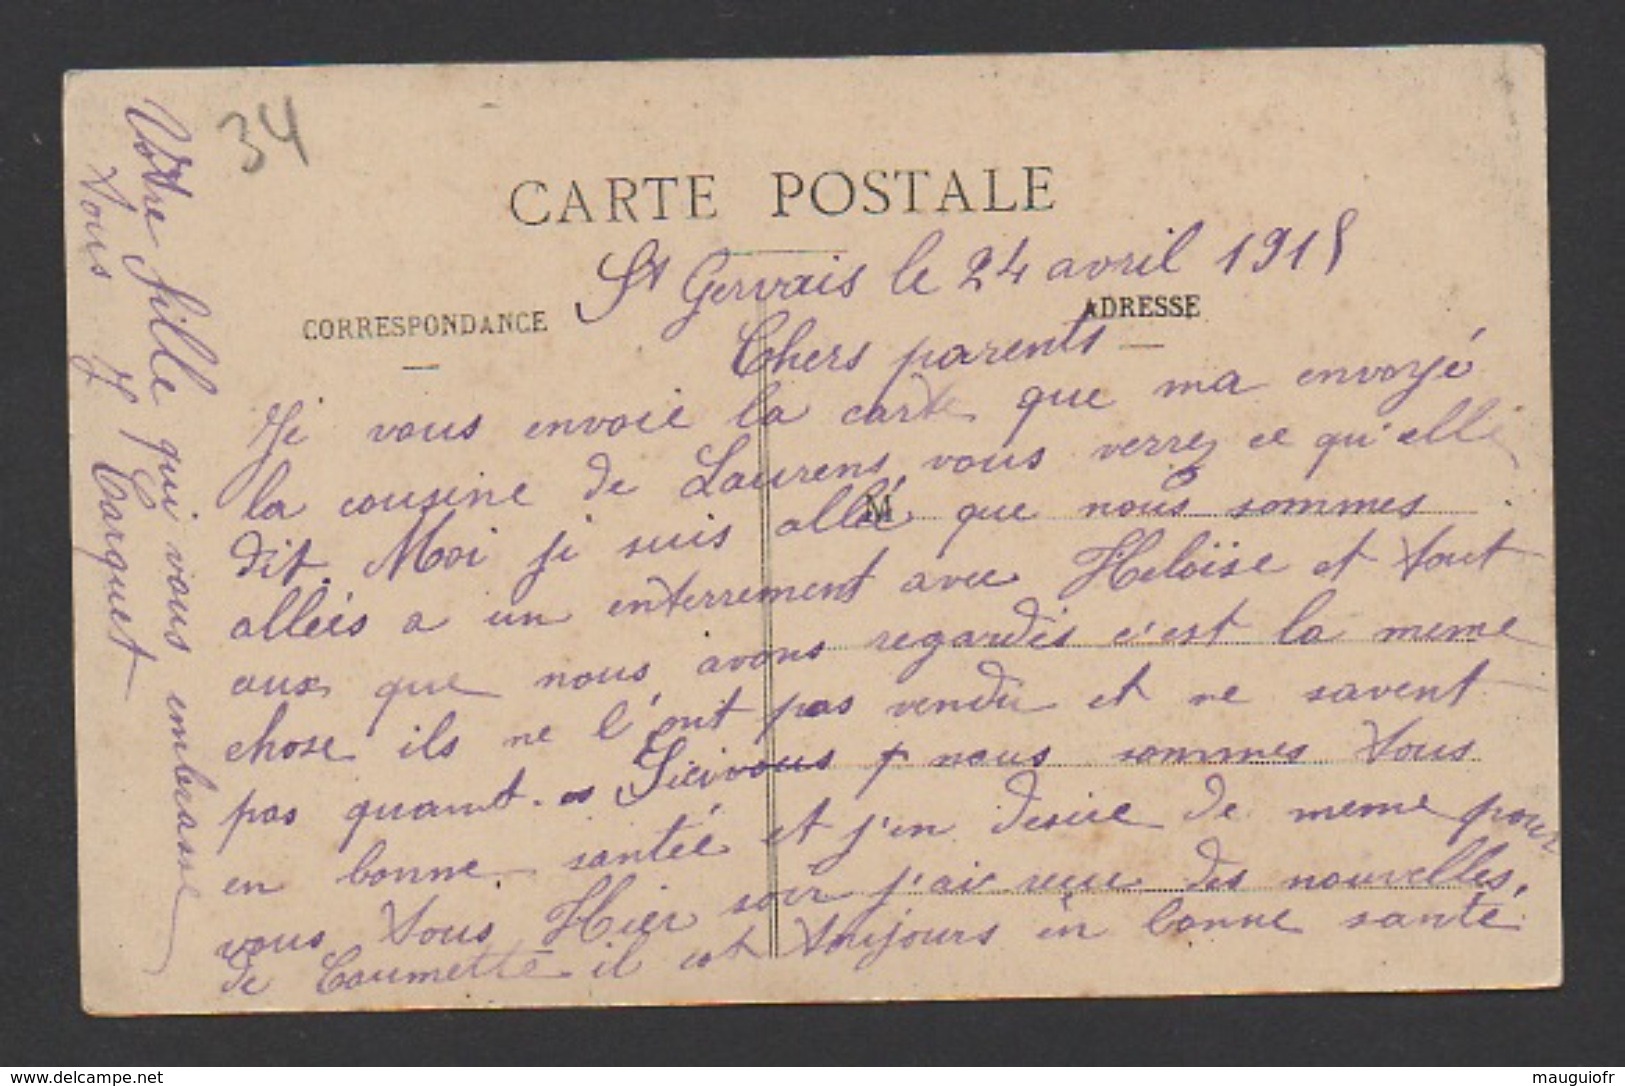 34
CARTE POSTALE
St Gervais le 24 avril 1915
CORRESPONDANCE
ADRESSE
Chers parents
Je vous envoie la carte que ma envoyé
la cousine de Laurens vous verrez ce qu'elle
dit. Moi je suis allée que nous sommes
M
allées a un enterrement avec Heloïse et tout
aux que nous avons regardés c'est la meme
chose ils ne l'ont pas vendu et ne savent
pas quant. nous sommes tous
en bonne santée et j'en desire de meme pour
vous tous Hier soir j'ai reçu des nouvelles,
de Coumette il est toujours en bonne santé
Votre fille qui vous embrasse
Tous J Carquet
mauguiofr